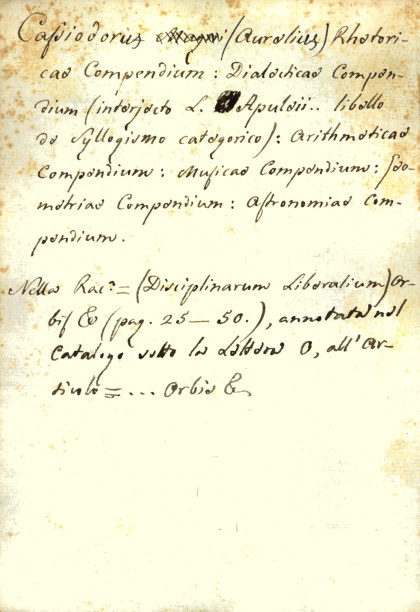 Cassiodorus (Aurelius) Rhetori-
cae Compendium: Dialecticae Compen-
dium (interjecto L. Apuleii.. libello
de Syllogismo categorico): Arithmeticae
Compendium: Musicae Compendium: Geo-
metriae Compendium: Astronomiae Com-
pendium.
Nella Rac.a = (Disciplinarum Liberalium) Or-
bis & (pag. 25 — 50.), annotata nel
Catalogo sotto la Lettera O, all'Ar-
ticolo = ... Orbis &